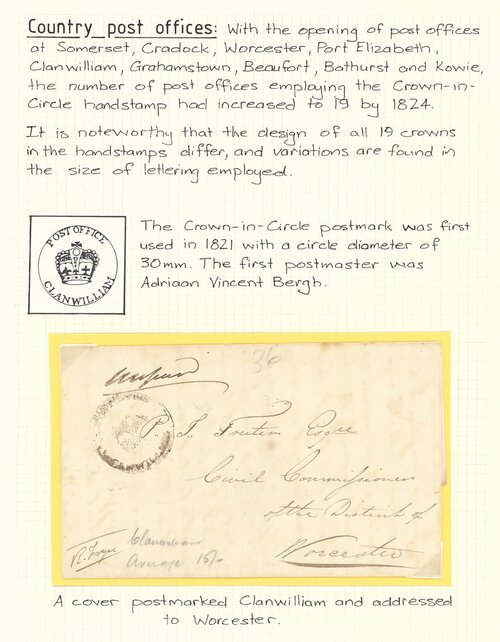 Country post offices: With the opening of post offices
at Somerset, Cradock, Worcester, Port Elizabeth,
Clanwilliam, Grahamstown, Beaufort, Bathurst and Kowie,
the number of post offices employing the Crown-in-
Circle handstamp had increased to 19 by 1824.
It is noteworthy that the design of all 19 crowns
in the handstamps differ, and variations are found in
the size of lettering employed.
POST OFFICE
CLANWILLIAM
The Crown-in-Circle postmark was first
used in 1821 with a circle diameter of
30mm. The first postmaster was
Adriaan Vincent Bergh.
36
CLANWILLIAM
P. J. Truter Esqre
Civil Commissioner
of the District of
Worcester
Clanwilliam
Average 15/-
A cover postmarked Clanwilliam and addressed
to Worcester.